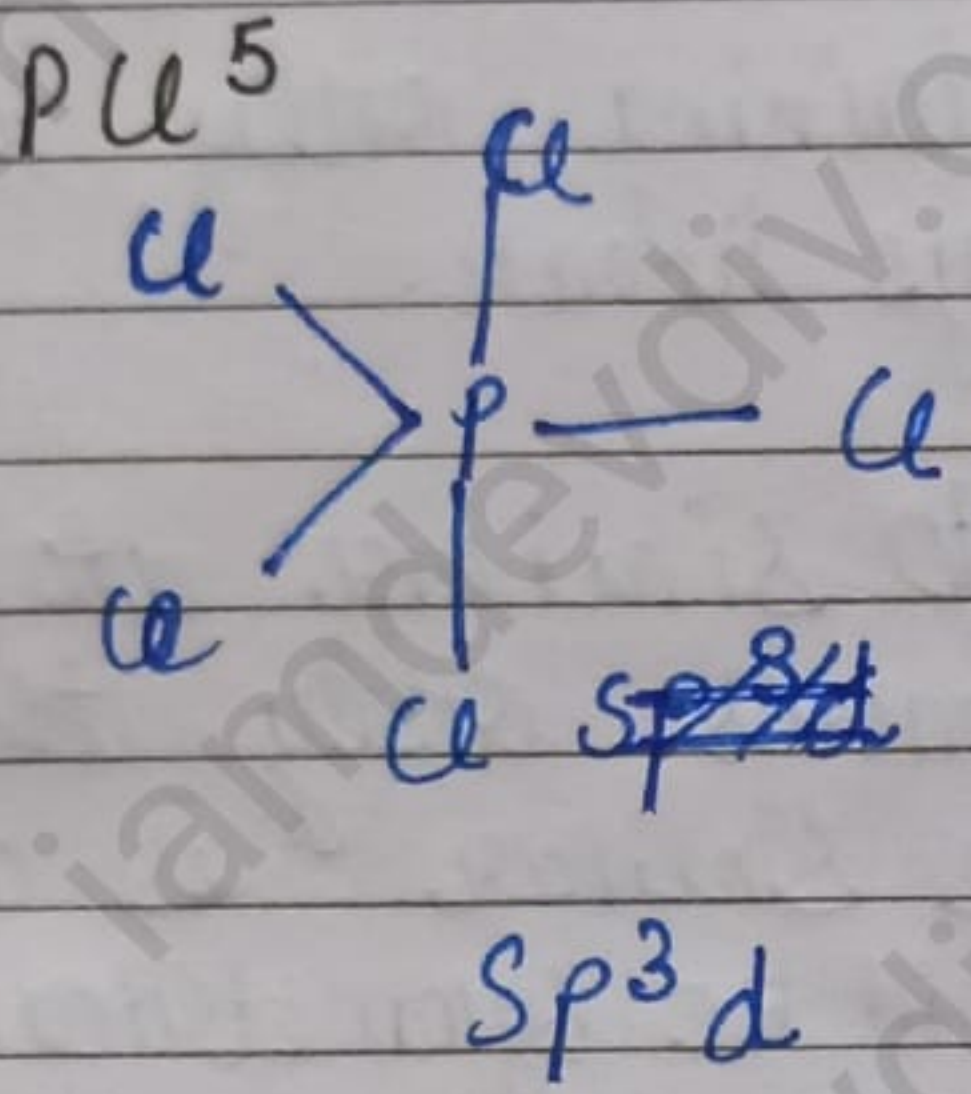 PCl⁵
Cl
Cl
P
Cl
Cl
Cl
Sp³d
iamdevdiv